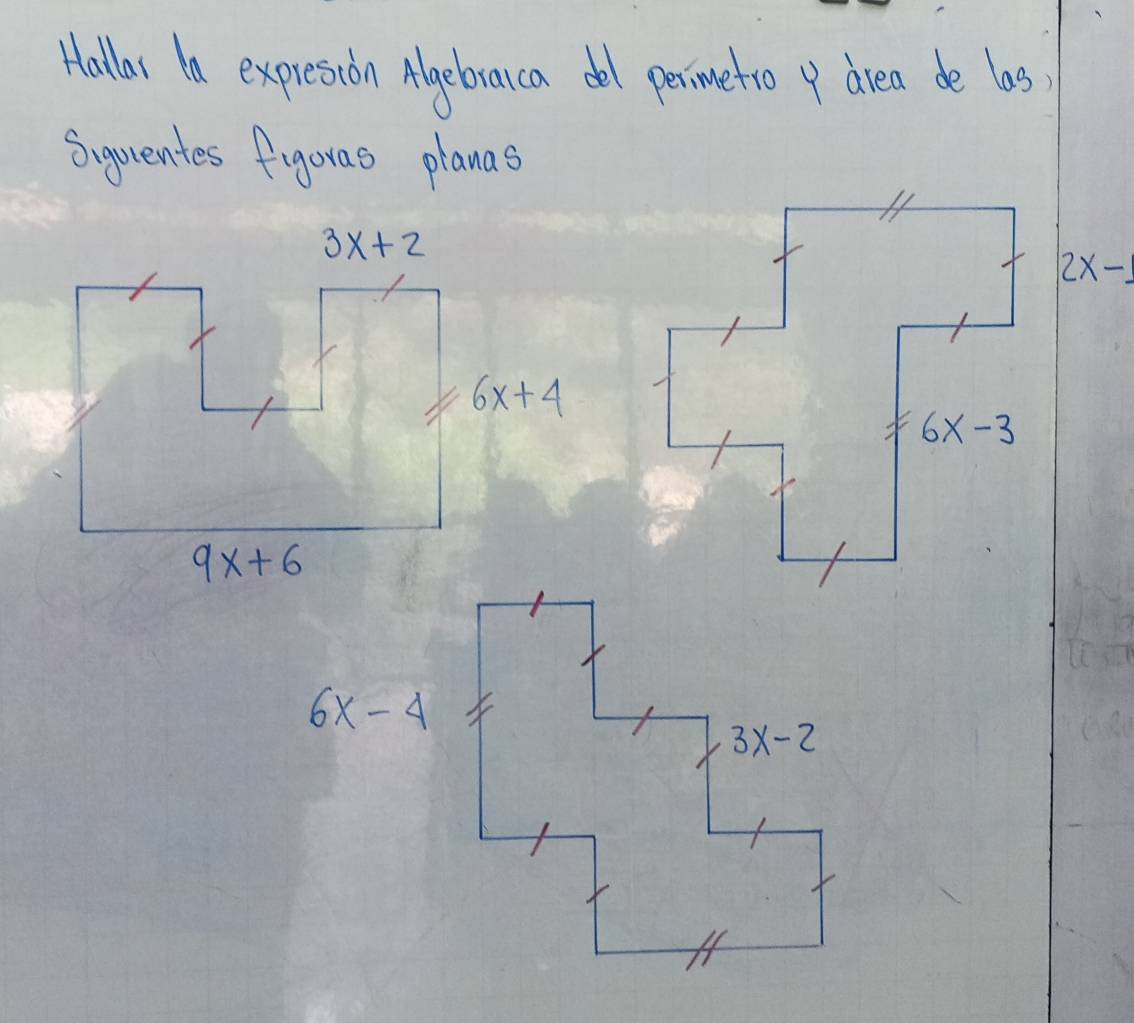 Hallar la expresión Algebraica del perímetro y área de las
Siguientes figuras planas
3x+2
6x+4
9x+6
2x-1
6x-3
6x-4
3x-2